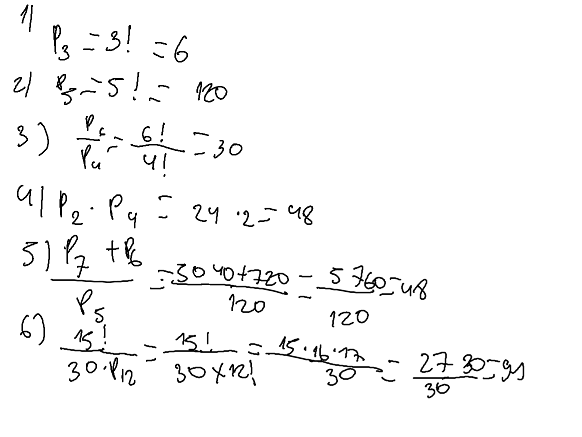 1) P₃ = 3! = 6
2) P₅ = 5! = 120
3) P₆/P₄ = 6!/4! = 30
4) P₂ · P₄ = 24 · 2 = 48
5) (P₇ + P₆)/P₅ = (3040+720)/120 = 5760/120 = 48
6) 15!/(30·P₁₂) = 15!/(30×12!) = (15·16·17)/30 = 2730/30 = 91